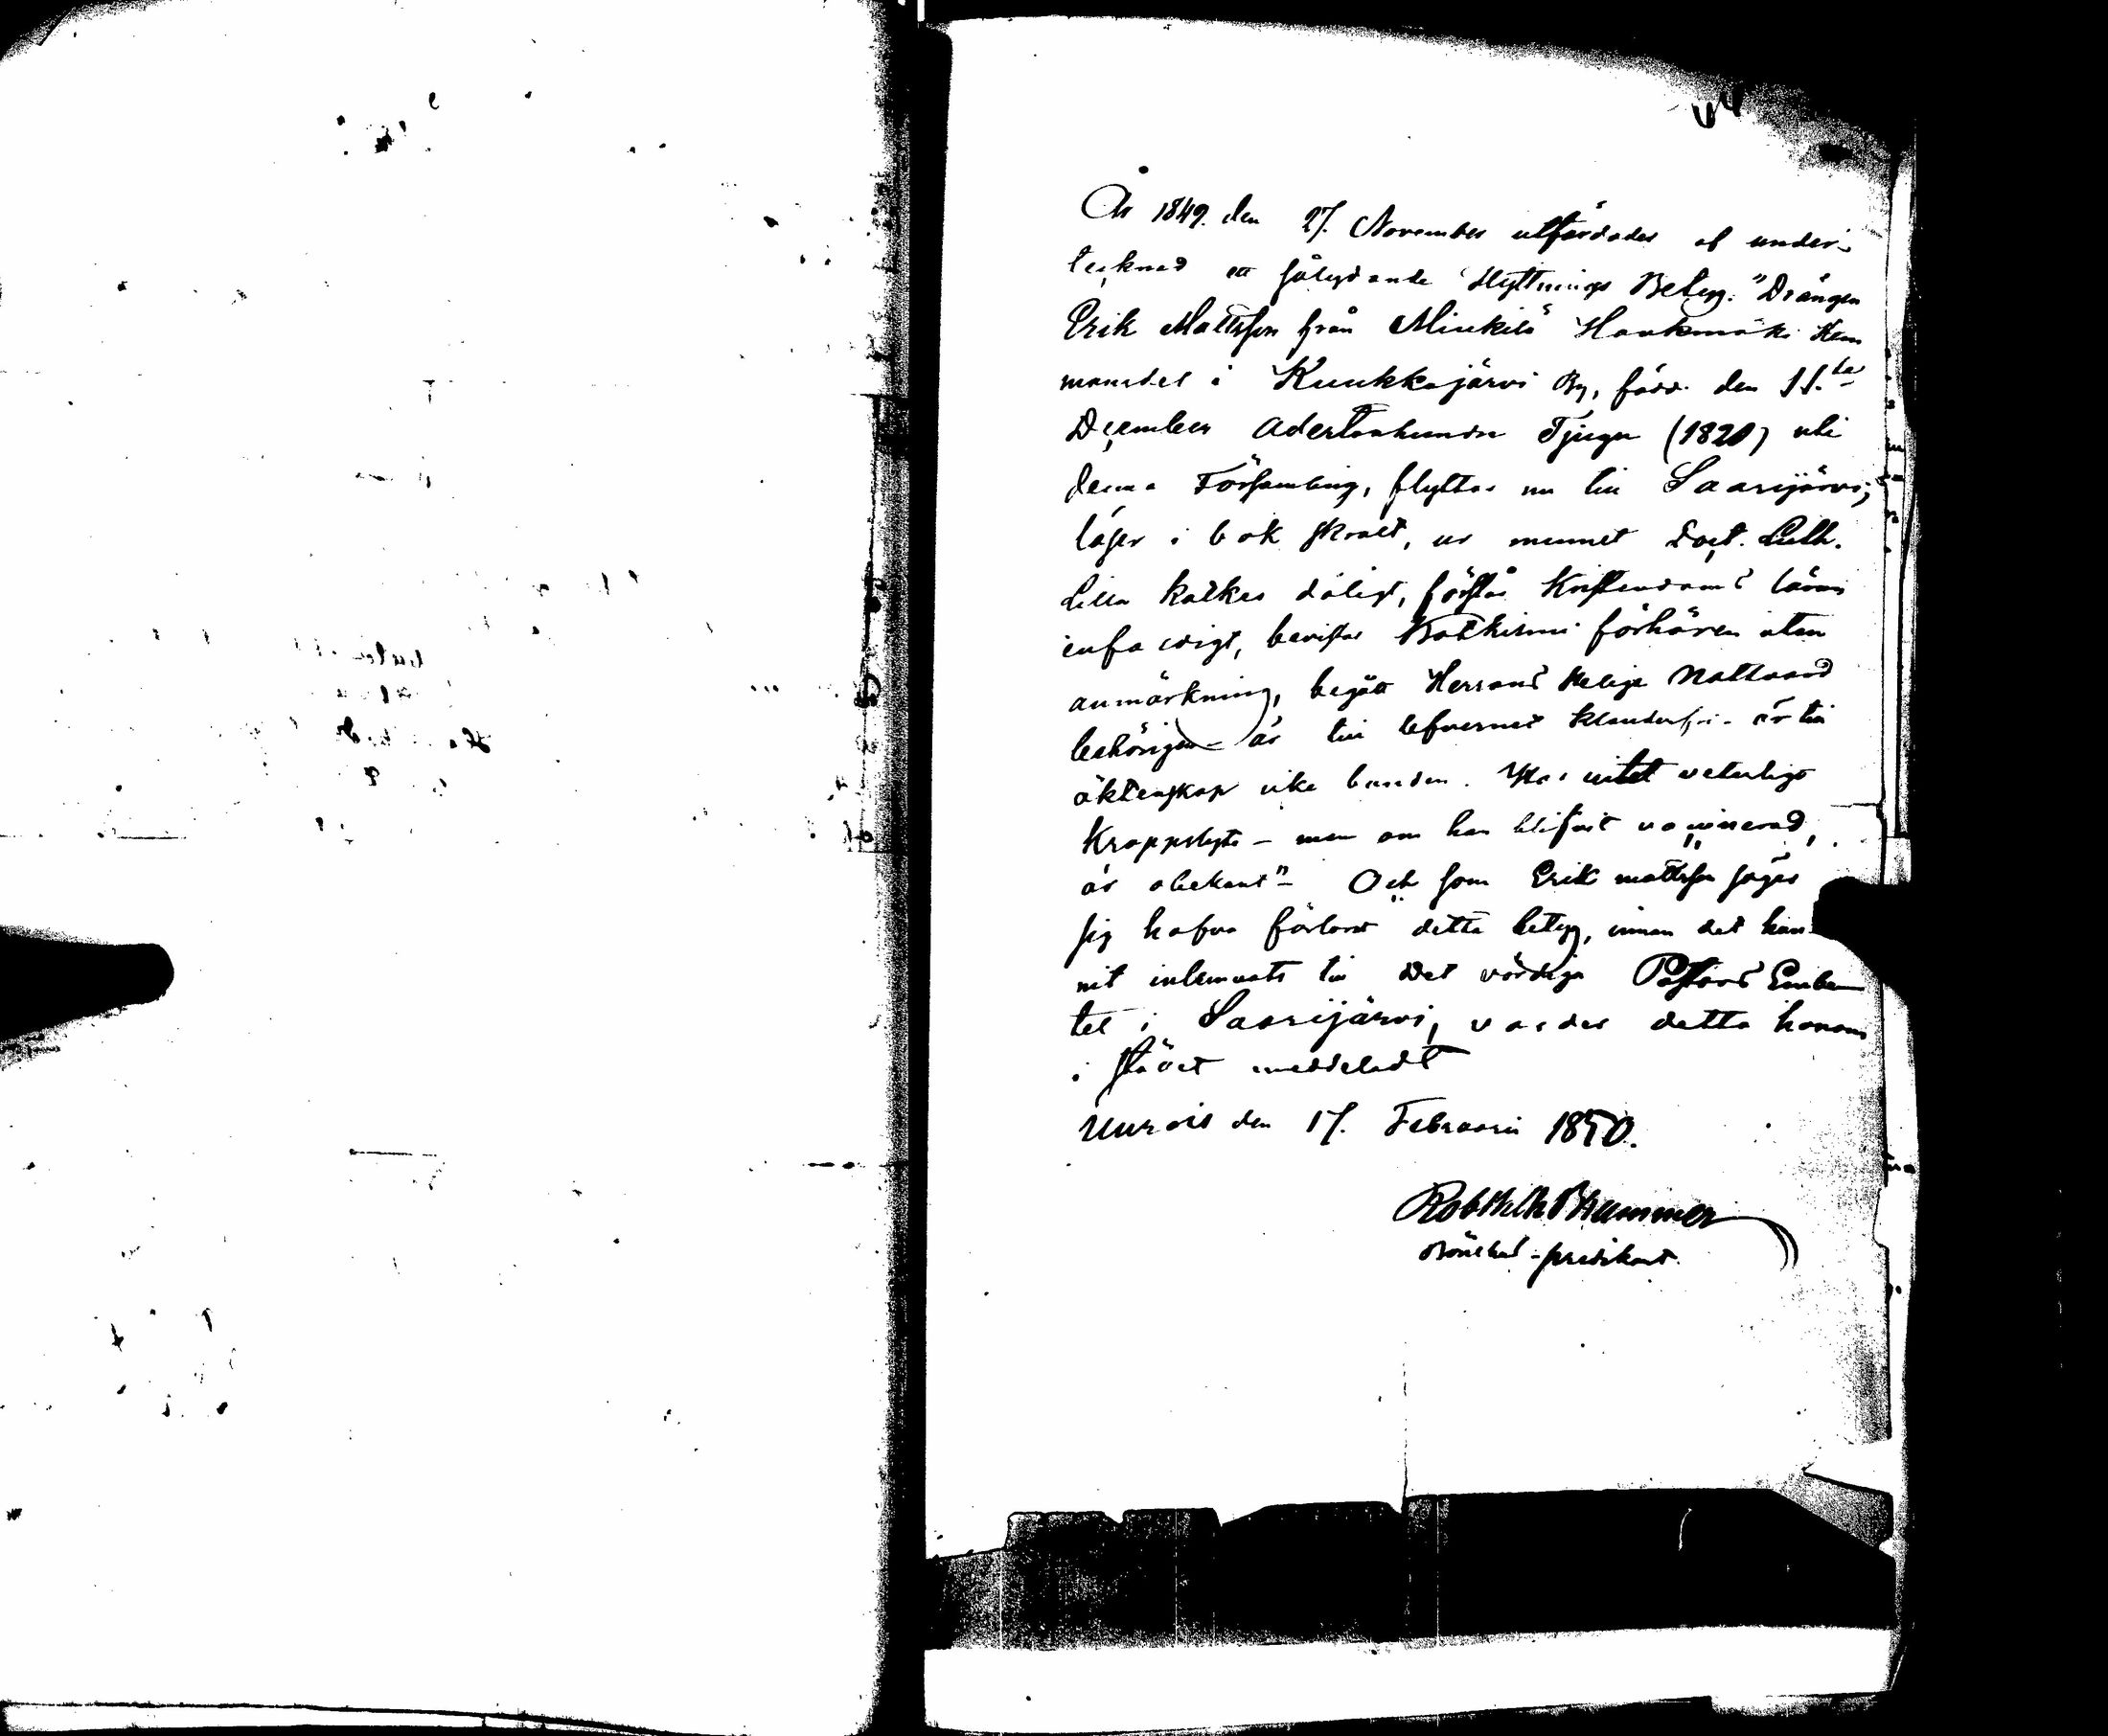 År 1849. den 27. November utfärdades af under-
tecknad ett sålydande Flyttnings Betyg. "Drängen
Erik Mattsson från Minkilä Haukmäki Hem
mandet i Kuukkajärvi By, född den 11.te
December Adertonhundra Tjugu (1820) uti
denna Församling, flyttar nu till Saarijärvi;
läser i bok skralt, ur minnet Doct. Luth.
Lilla katkes dåligt, förstår Kristendoms läran
enfaldigt, bevistar Katkismi förhören utan
anmärkning, begått Herrans Heliga Nattvard
behörigen – är till lefvernet klanderfri – är till
äktenskap icke bunden. Har intet veterligt
kroppslyte – men om han blifvit vaccinerad,
är obekant" – Och som Erik Mattsson säges
sig hafva förlorat detta betyg, innan det hun-
nit inlemnats till Det vördiga Pastors Embe
tet i Saarijärvi, varder detta honom
i stället meddeladt
den 17. Februarii 1850.
Brummer
predikant.